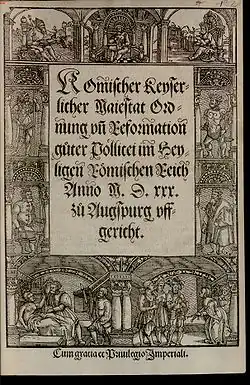 Römischer Keyser-
licher Maiestat Ord-
nung vñ Reformation
gůter Pollicei im Hey-
ligen Römischen Reich
Anno M. D. xxx.
zů Augspurg vff-
gericht.
Cum gratia et Priuilegio Imperiali.